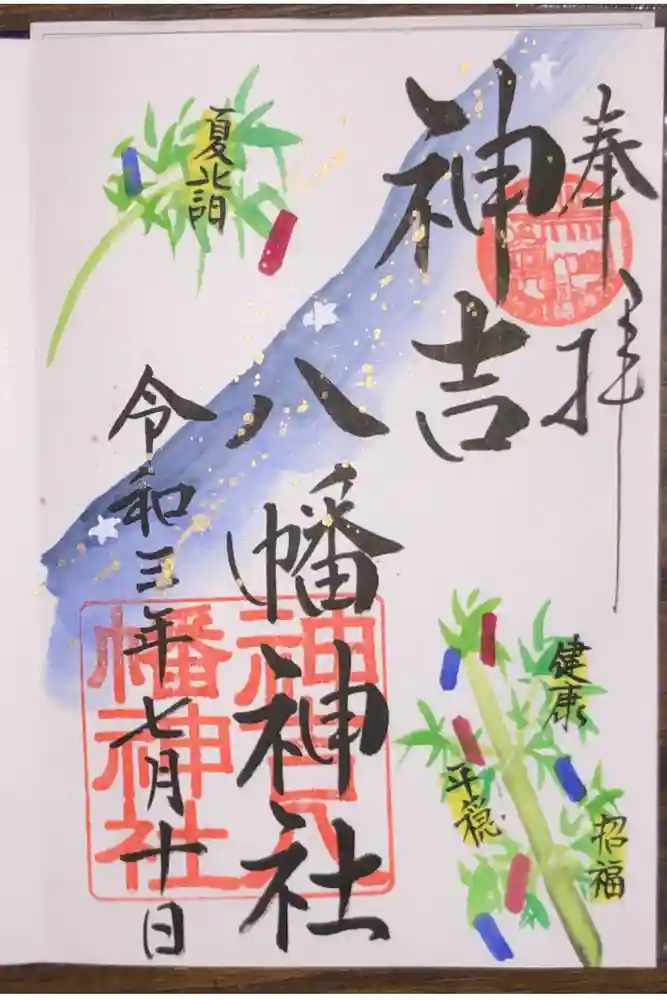 奉拝
神吉
八幡神社
神吉八
幡神社
令和三年七月十日
夏詣
健康
平穏
招福